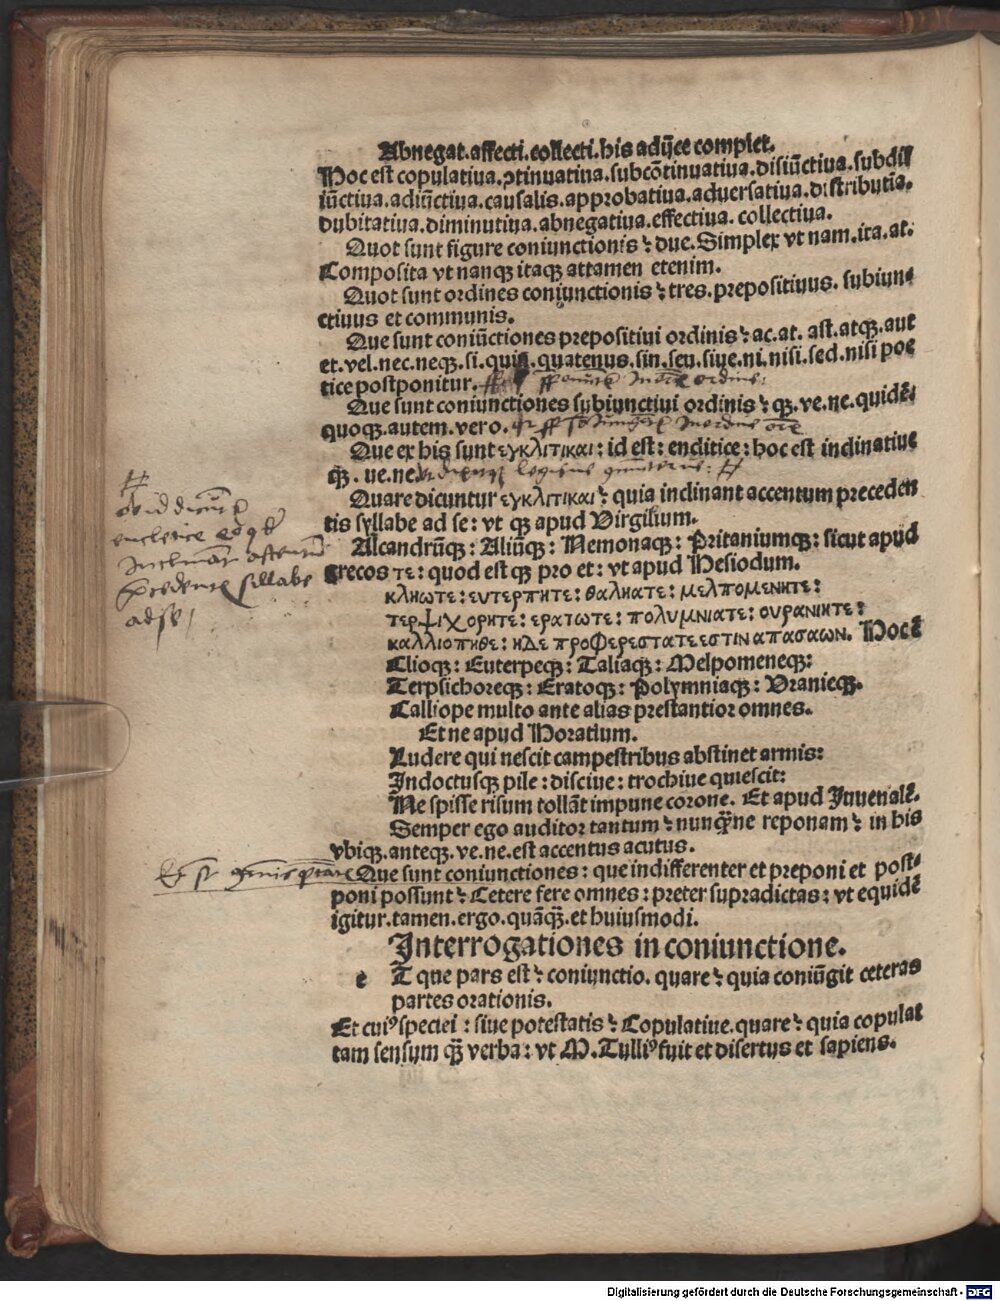 Abnegat.affecti.collecti.his adijce complet.
Hoc est copulatiua.ↄtinuatiua.subcōtinuatiua.disiūctiua.subdis
iūctiua.adiūctiua.causalis.approbatiua.aduersatiua.distributia.
dubitatiua.diminutiua.abnegatiua.effectiua. collectiua.
Quot sunt figure coniunctionis? due. Simplex vt nam.ita.at.
Composita vt nanqꝫ itaqꝫ attamen etenim.
Quot sunt ordines coniunctionis? tres.prepositiuus. subiun-
ctiuus et communis.
Que sunt coniūctiones prepositiui ordinis? ac.at. ast.atqꝫ.aut
et.vel.nec.neqꝫ.si.quin.quatenus.sin.seu.siue.ni.nisi.sed.nisi poe
tice postponitur.
Que sunt coniunctiones subiunctiui ordinis? qꝫ.ve.ne.quidē.
quoqꝫ.autem.vero.
Que ex his sunt εγκλιτικαι: id est: enclitice: hoc est inclinatiue
qꝫ. ue.ne.
Quare dicuntur εγκλιτικαι? quia inclinant accentum preceden
tis syllabe ad se: vt qꝫ apud Virgilium.
Alcandrūqꝫ: Aliūqꝫ: Nemonaqꝫ: Pritaniumqꝫ: sicut apud
grecos τε: quod est qꝫ pro et: vt apud Hesiodum.
κληωτε: ευτερπητε: θαληατε: μελπομενητε:
τερψιχορητε: ερατωτε: πολυμνιατε: ουρανιητε:
καλλιοπηθε: ηδε προφερεστατεεστιναπασαων. Hoc ē
Clioqꝫ: Euterpeqꝫ: Taliaqꝫ: Melpomeneqꝫ:
Terpsichoreqꝫ: Eratoqꝫ: Polymniaqꝫ: Vranieqꝫ.
Calliope multo ante alias prestantior omnes.
Et ne apud Horatium.
Ludere qui nescit campestribus abstinet armis:
Indoctusqꝫ pile: disciue: trochiue quiescit:
Ne spisse risum tollāt impune corone. Et apud Iuuenalē.
Semper ego auditor tantum? nunqꝫ̄ne reponam? in his
vbiqꝫ.anteqꝫ.ve.ne.est accentus acutus.
Que sunt coniunctiones: que indifferenter et preponi et post-
poni possunt? Cetere fere omnes: preter supradictas: vt equidē
igitur.tamen.ergo.quāqꝫ̄.et huiusmodi.
Interrogationes in coniunctione.
e T que pars est? coniunctio. quare? quia coniūgit ceteras
partes orationis.
Et cuiꝰ speciei: siue potestatis? Copulatiue.quare? quia copulat
tam sensum qꝫ̄ verba: vt M.Tulliꝰ fuit et disertus et sapiens.
Digitalisierung gefördert durch die Deutsche Forschungsgemeinschaft - DFG